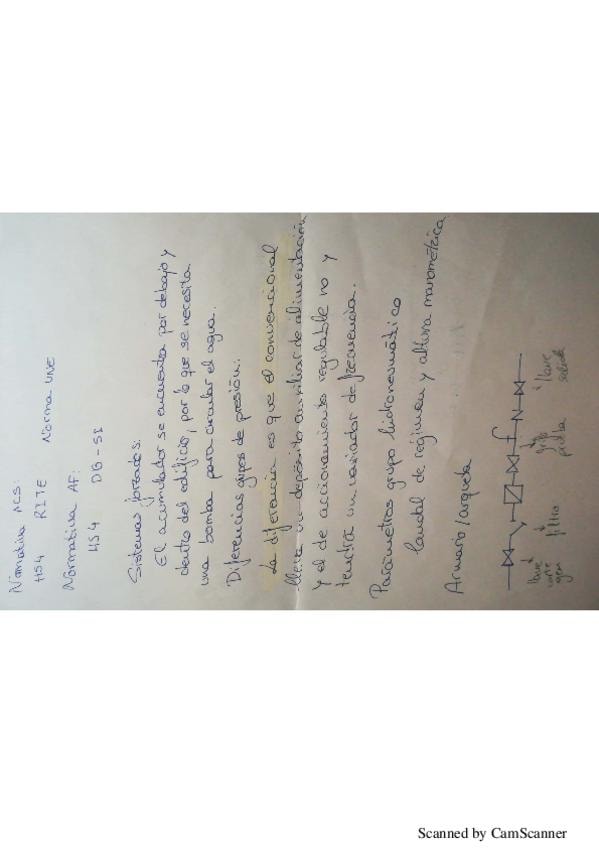 Normativa ACS:
HS4 RITE Norma UNE
Normativa AF:
HS4 DB-SI
Sistemas forzados:
El acumulador se encuentra por debajo y
dentro del edificio, por lo que se necesita
una bomba para circular el agua.
Diferencias grupos de presión:
La diferencia es que el convencional
lleva un depósito auxiliar de alimentación
y el de accionamiento regulable no y
tendrá un variador de frecuencia.
Parámetros grupo hidroneumático
Caudal de régimen y altura manométrica
Armario/arqueta
llave
corte
gen
filtro
grifo
prueba
llave
salida
Scanned by CamScanner